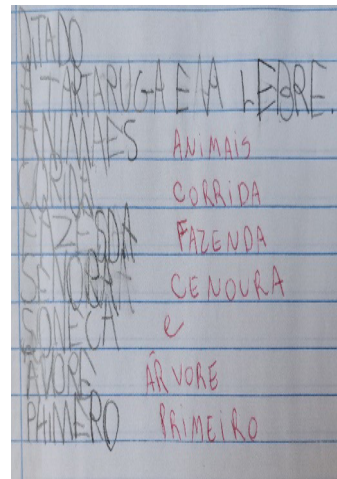 DITADO
A TARTARUGA E A LEBRE.
ANIMAES ANIMAIS
CORRIDA
FAZESDA FAZENDA
SENORA CENOURA
SONECA e
AVORE ÁRVORE
PHIMERO PRIMEIRO